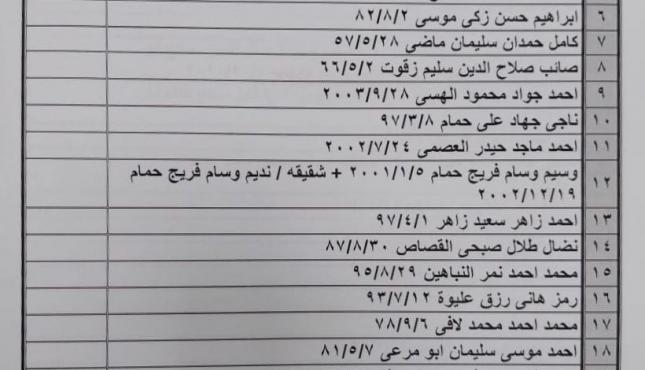 ٦ ابراهيم حسن زكى موسى ٨٢/٨/٢
٧ كامل حمدان سليمان ماضي ٥٧/٥/٢٨
٨ صائب صلاح الدين سليم زقوت ٦٦/٥/٢
٩ احمد جواد محمود الهسى ٢٠٠٣/٩/٢٨
١٠ ناجى جهاد على حمام ٩٧/٣/٨
١١ احمد ماجد حيدر العصمى ٢٠٠٢/٧/٢٤
١٢ وسيم وسام فريج حمام ٢٠٠١/١/٥ + شقيقه / نديم وسام فريج حمام
٢٠٠٢/١٢/١٩
١٣ احمد زاهر سعيد زاهر ٩٧/٤/١
١٤ نضال طلال صبحى القصاص ٨٧/٨/٣٠
١٥ محمد احمد نمر النباهين ٩٥/٨/٢٩
١٦ رمز هانى رزق عليوة ٩٣/٧/١٢
١٧ محمد احمد محمد لافى ٧٨/٩/٦
١٨ احمد موسى سليمان ابو مرعى ٨١/٥/٧